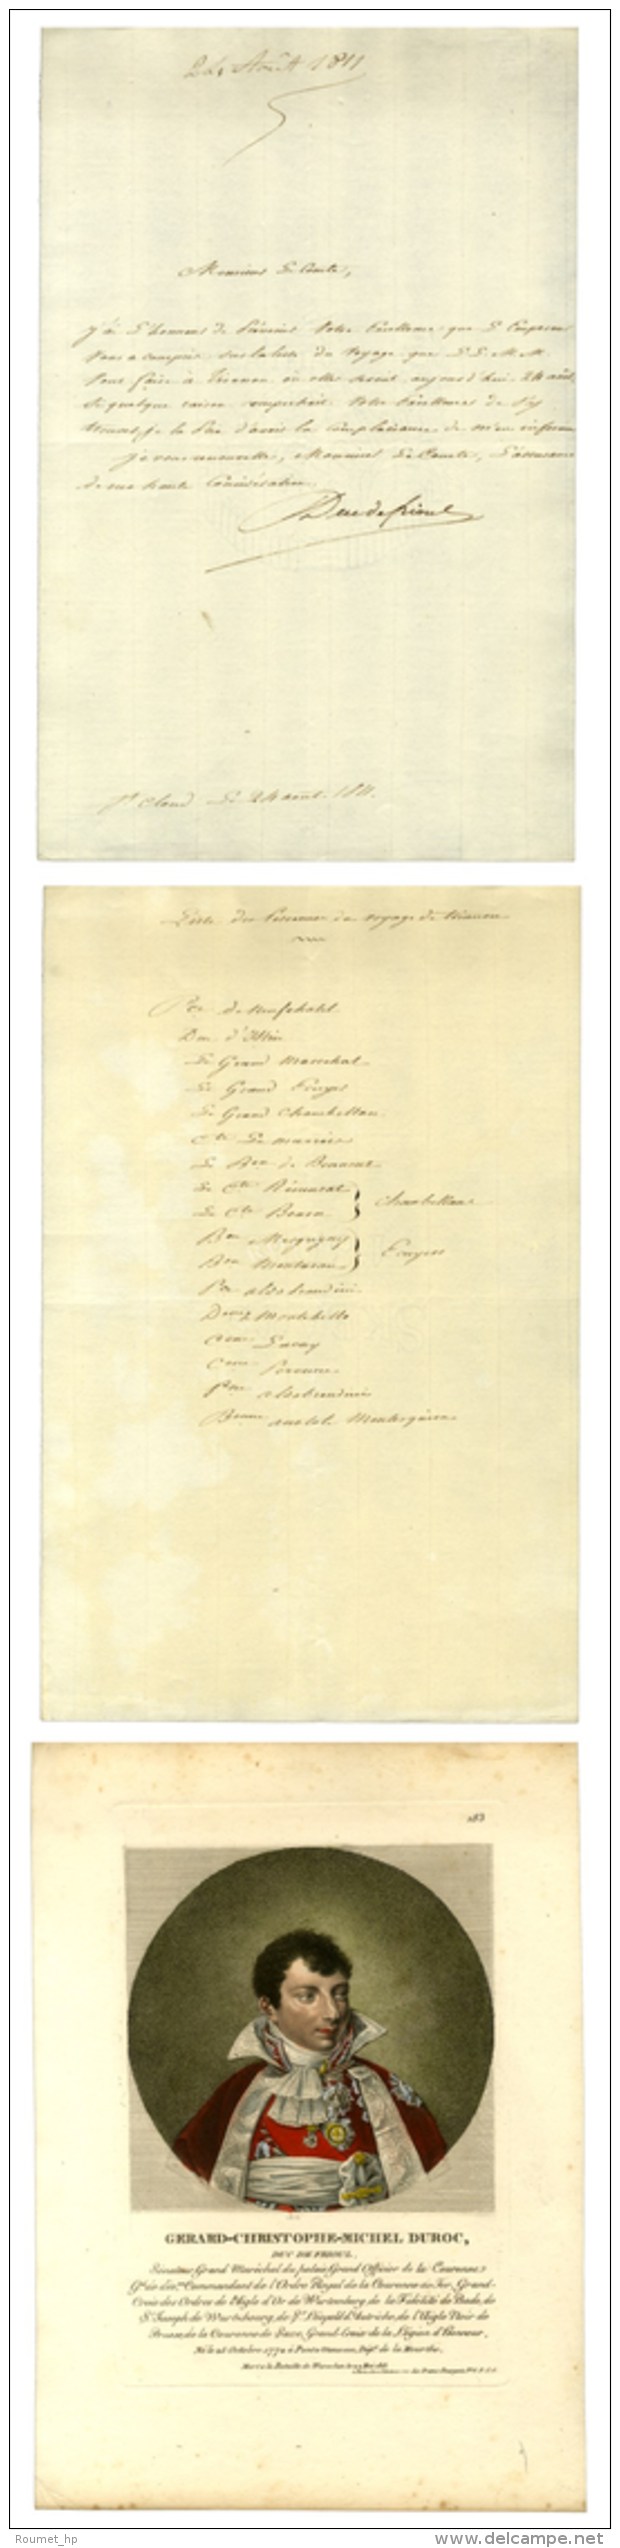 24 Août 1811
Monsieur Le Comte,
j'ai L'honneur de Prévenir Votre Excellence que L'Empereur
Vous a compris sur la liste du Voyage que L.L. M.M.
Vont faire à Trianon où elles seront aujourd'hui 24 août.
Si quelque raison empechait Votre Excellence de s'y
trouver, je la Prie d'avoir la complaisance de m'en informer
je vous renouvelle, Monsieur Le Comte, L'assurance
de ma haute Considération.
Duc de frioul
St Cloud Le 24 août 1811.
Liste des Personnes du voyage de Trianon
Pce de Neufchatel
Duc d'Istrie
Le Grand Marechal
Le Grand Ecuyer
Le Grand Chambellan
Cte Le
Le Bon de Beausset
Le Cte Rémusat
Le Cte Bearn
Chambellans
Bon Mesgrigny
Bon
Ecuyers
Pce aldobrandini
Dsse de Montebello
Ctesse
Ctesse Perronne
Psse aldobrandini
Bonne anatole Montesquiou
183
GERARD-CHRISTOPHE-MICHEL DUROC,
DUC DE FRIOUL,
Sénateur Grand Maréchal du palais, Grand Officier de la Couronne,
Gal de divon Commandant de l'Ordre Royal de la Couronne de Fer, Grand-
Croix des Ordres de l'Aigle d'Or de Wurtemberg, de la Fidélité de Bade, de
St Joseph de Wurtzbourg, de St Léopold d'Autriche, de l'Aigle Noir de
Prusse, de la Couronne de Saxe, Grand-Croix de la Légion d'Honneur.
Né le 25 Octobre 1772 à Pont-à-Mousson, Dépt de la Meurthe.
Roumet_hp
www.delcampe.net